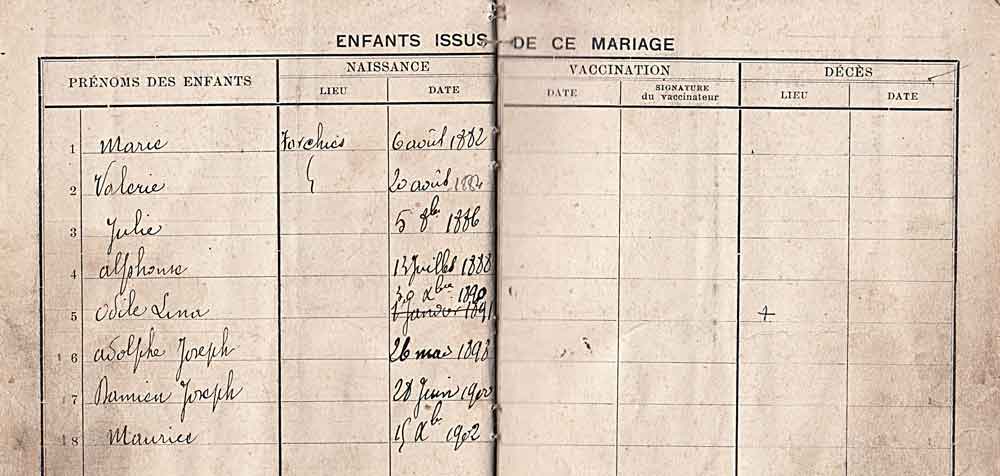 ENFANTS ISSUS DE CE MARIAGE
PRÉNOMS DES ENFANTS NAISSANCE VACCINATION DÉCÈS
LIEU DATE DATE SIGNATURE du vaccinateur LIEU DATE
1 Marie Forchies 6 août 1882
2 Valerie 20 août 1884
3 Julie 5 8bre 1886
4 alphonse 13 Juillet 1888
30 Xbre 1890
5 Odile Lina 1 Janvier 1891 +
6 adolphe Joseph 26 mai 1898
7 Damien Joseph 28 Juin 1900
8 Maurice 15 Xbre 1902